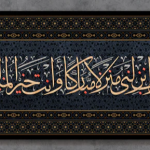 أنزلني منزلا مباركا وأنت خير